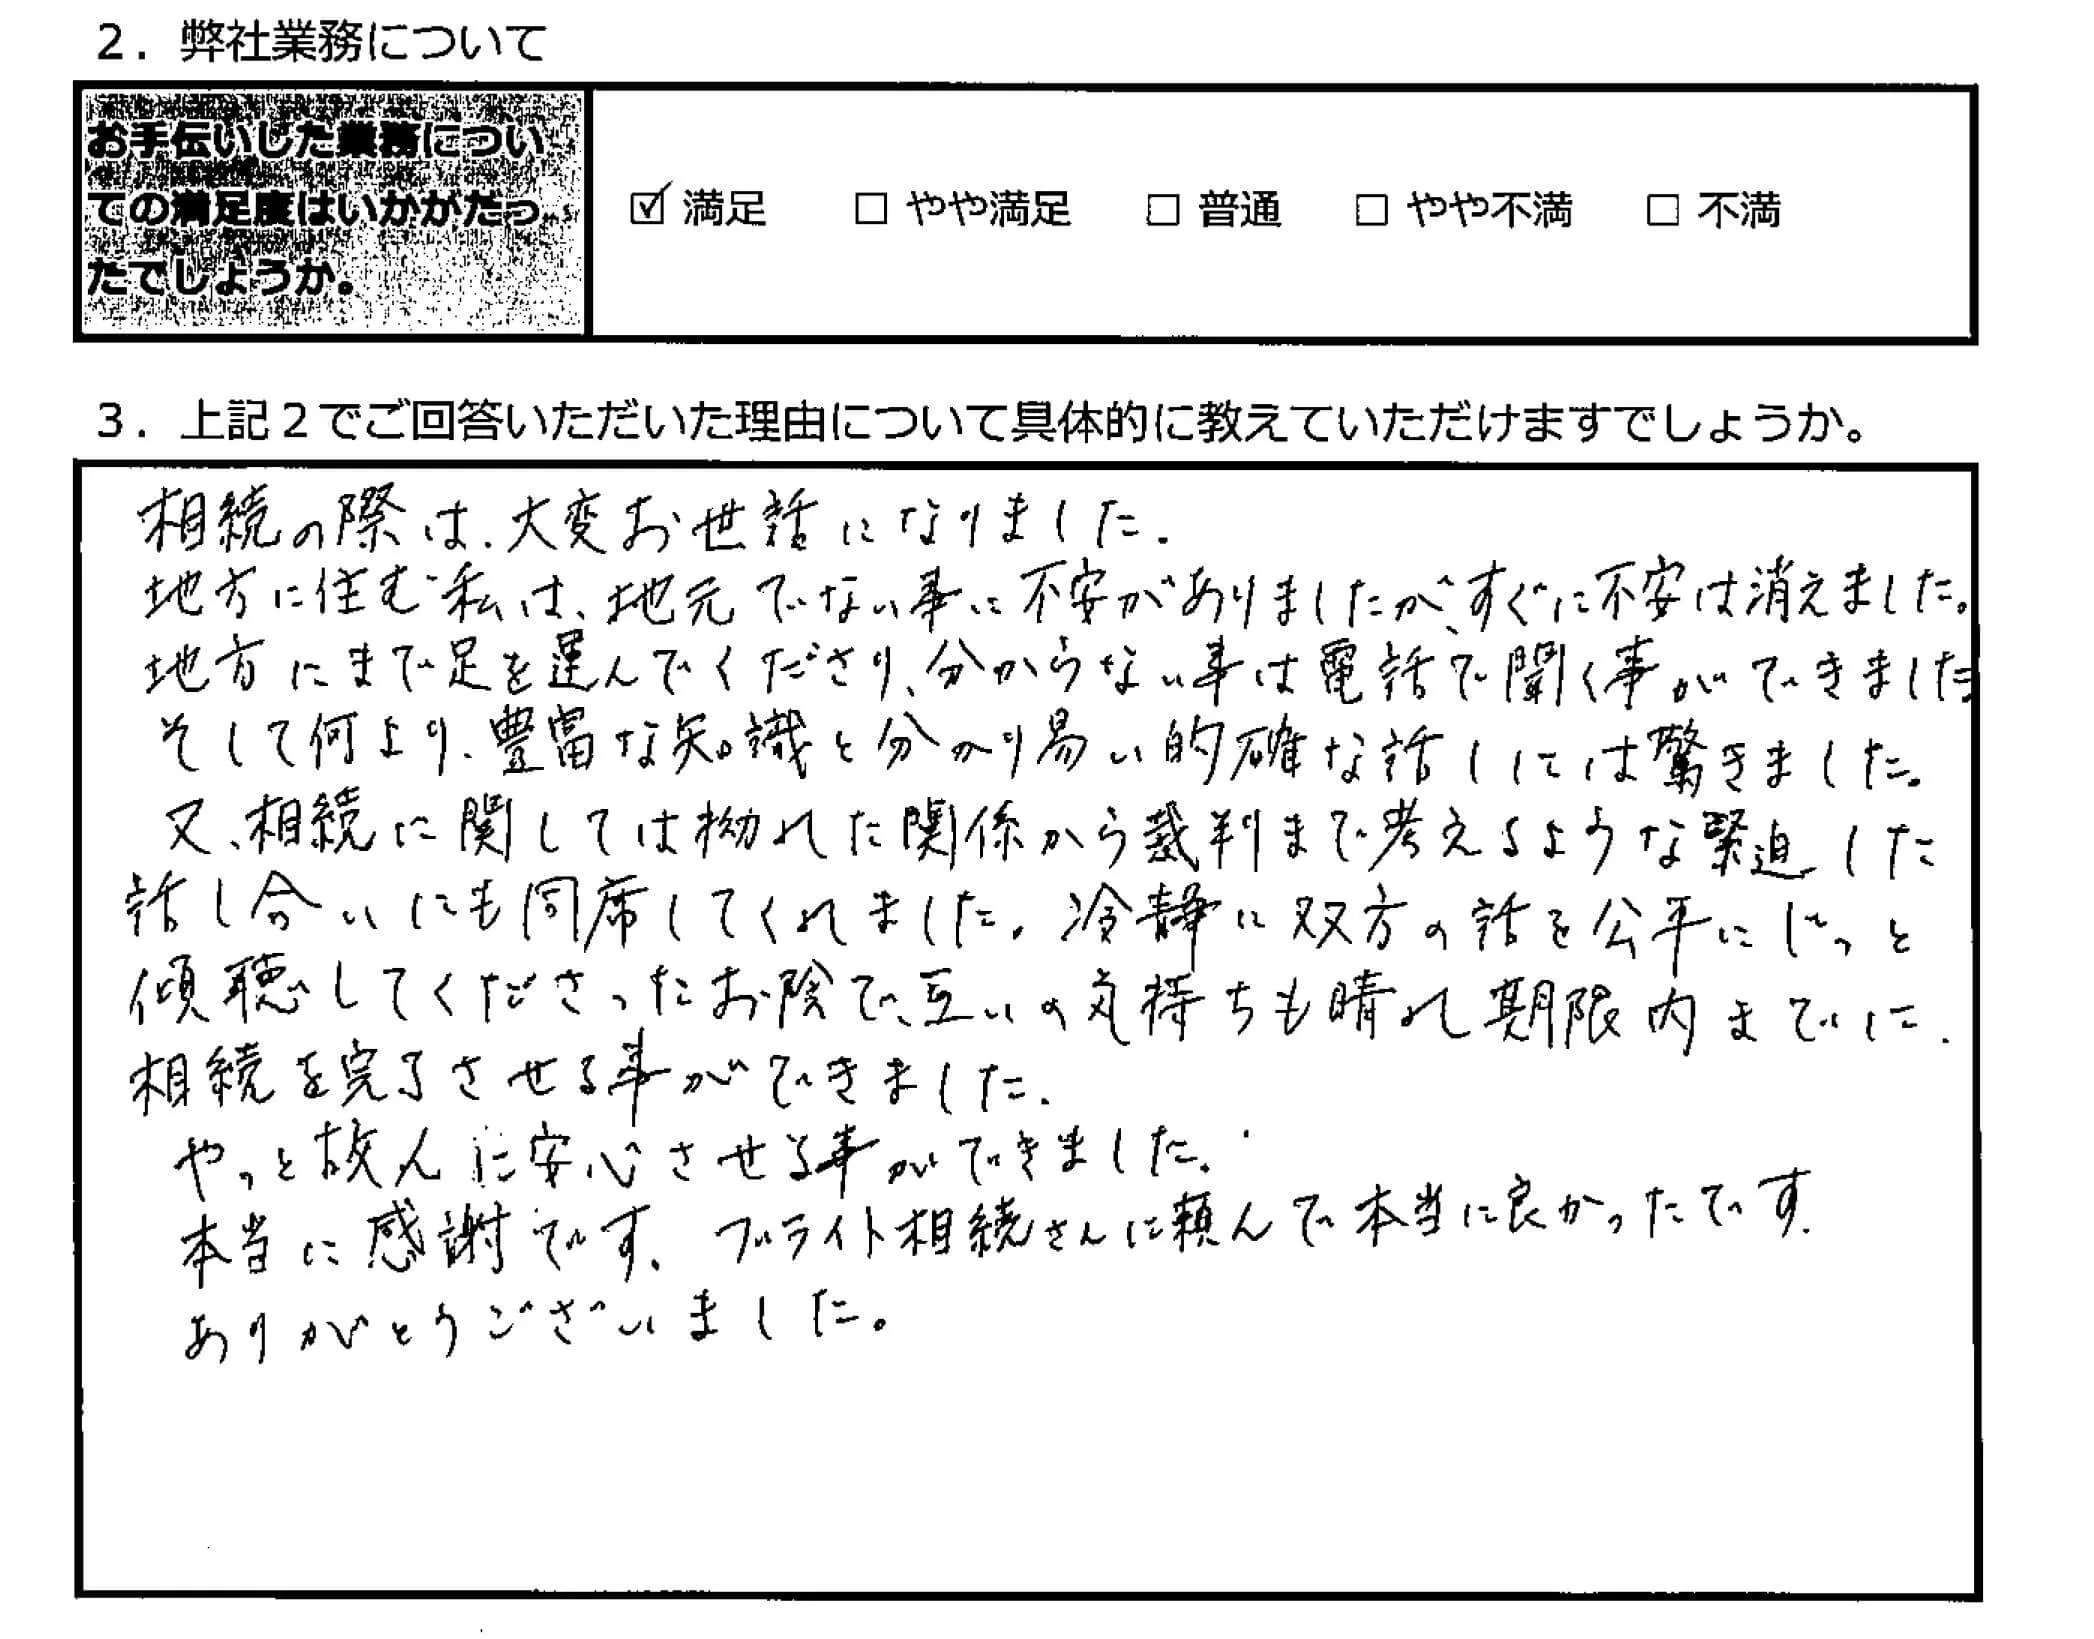 2．弊社業務について
お手伝いした業務につい
ての満足度はいかがだっ
たでしょうか。
☑ 満足 □ やや満足 □ 普通 □ やや不満 □ 不満
3．上記２でご回答いただいた理由について具体的に教えていただけますでしょうか。
相続の際は、大変お世話になりました。
地方に住む私は、地元でない事に不安がありましたが、すぐに不安は消えました。
地方にまで足を運んでくださり、分からない事は電話で聞く事ができました
そして何より、豊富な知識と分かり易い的確な話しには驚きました。
又、相続に関しては拗れた関係から裁判まで考えるような緊迫した
話し合いにも同席してくれました。冷静に双方の話を公平にじっと
傾聴してくださったお陰で、互いの気持ちも晴れ期限内までに、
相続を完了させる事ができました。
やっと故人に安心させる事ができました。
本当に感謝です。ブライト相続さんに頼んで本当に良かったです。
ありがとうございました。